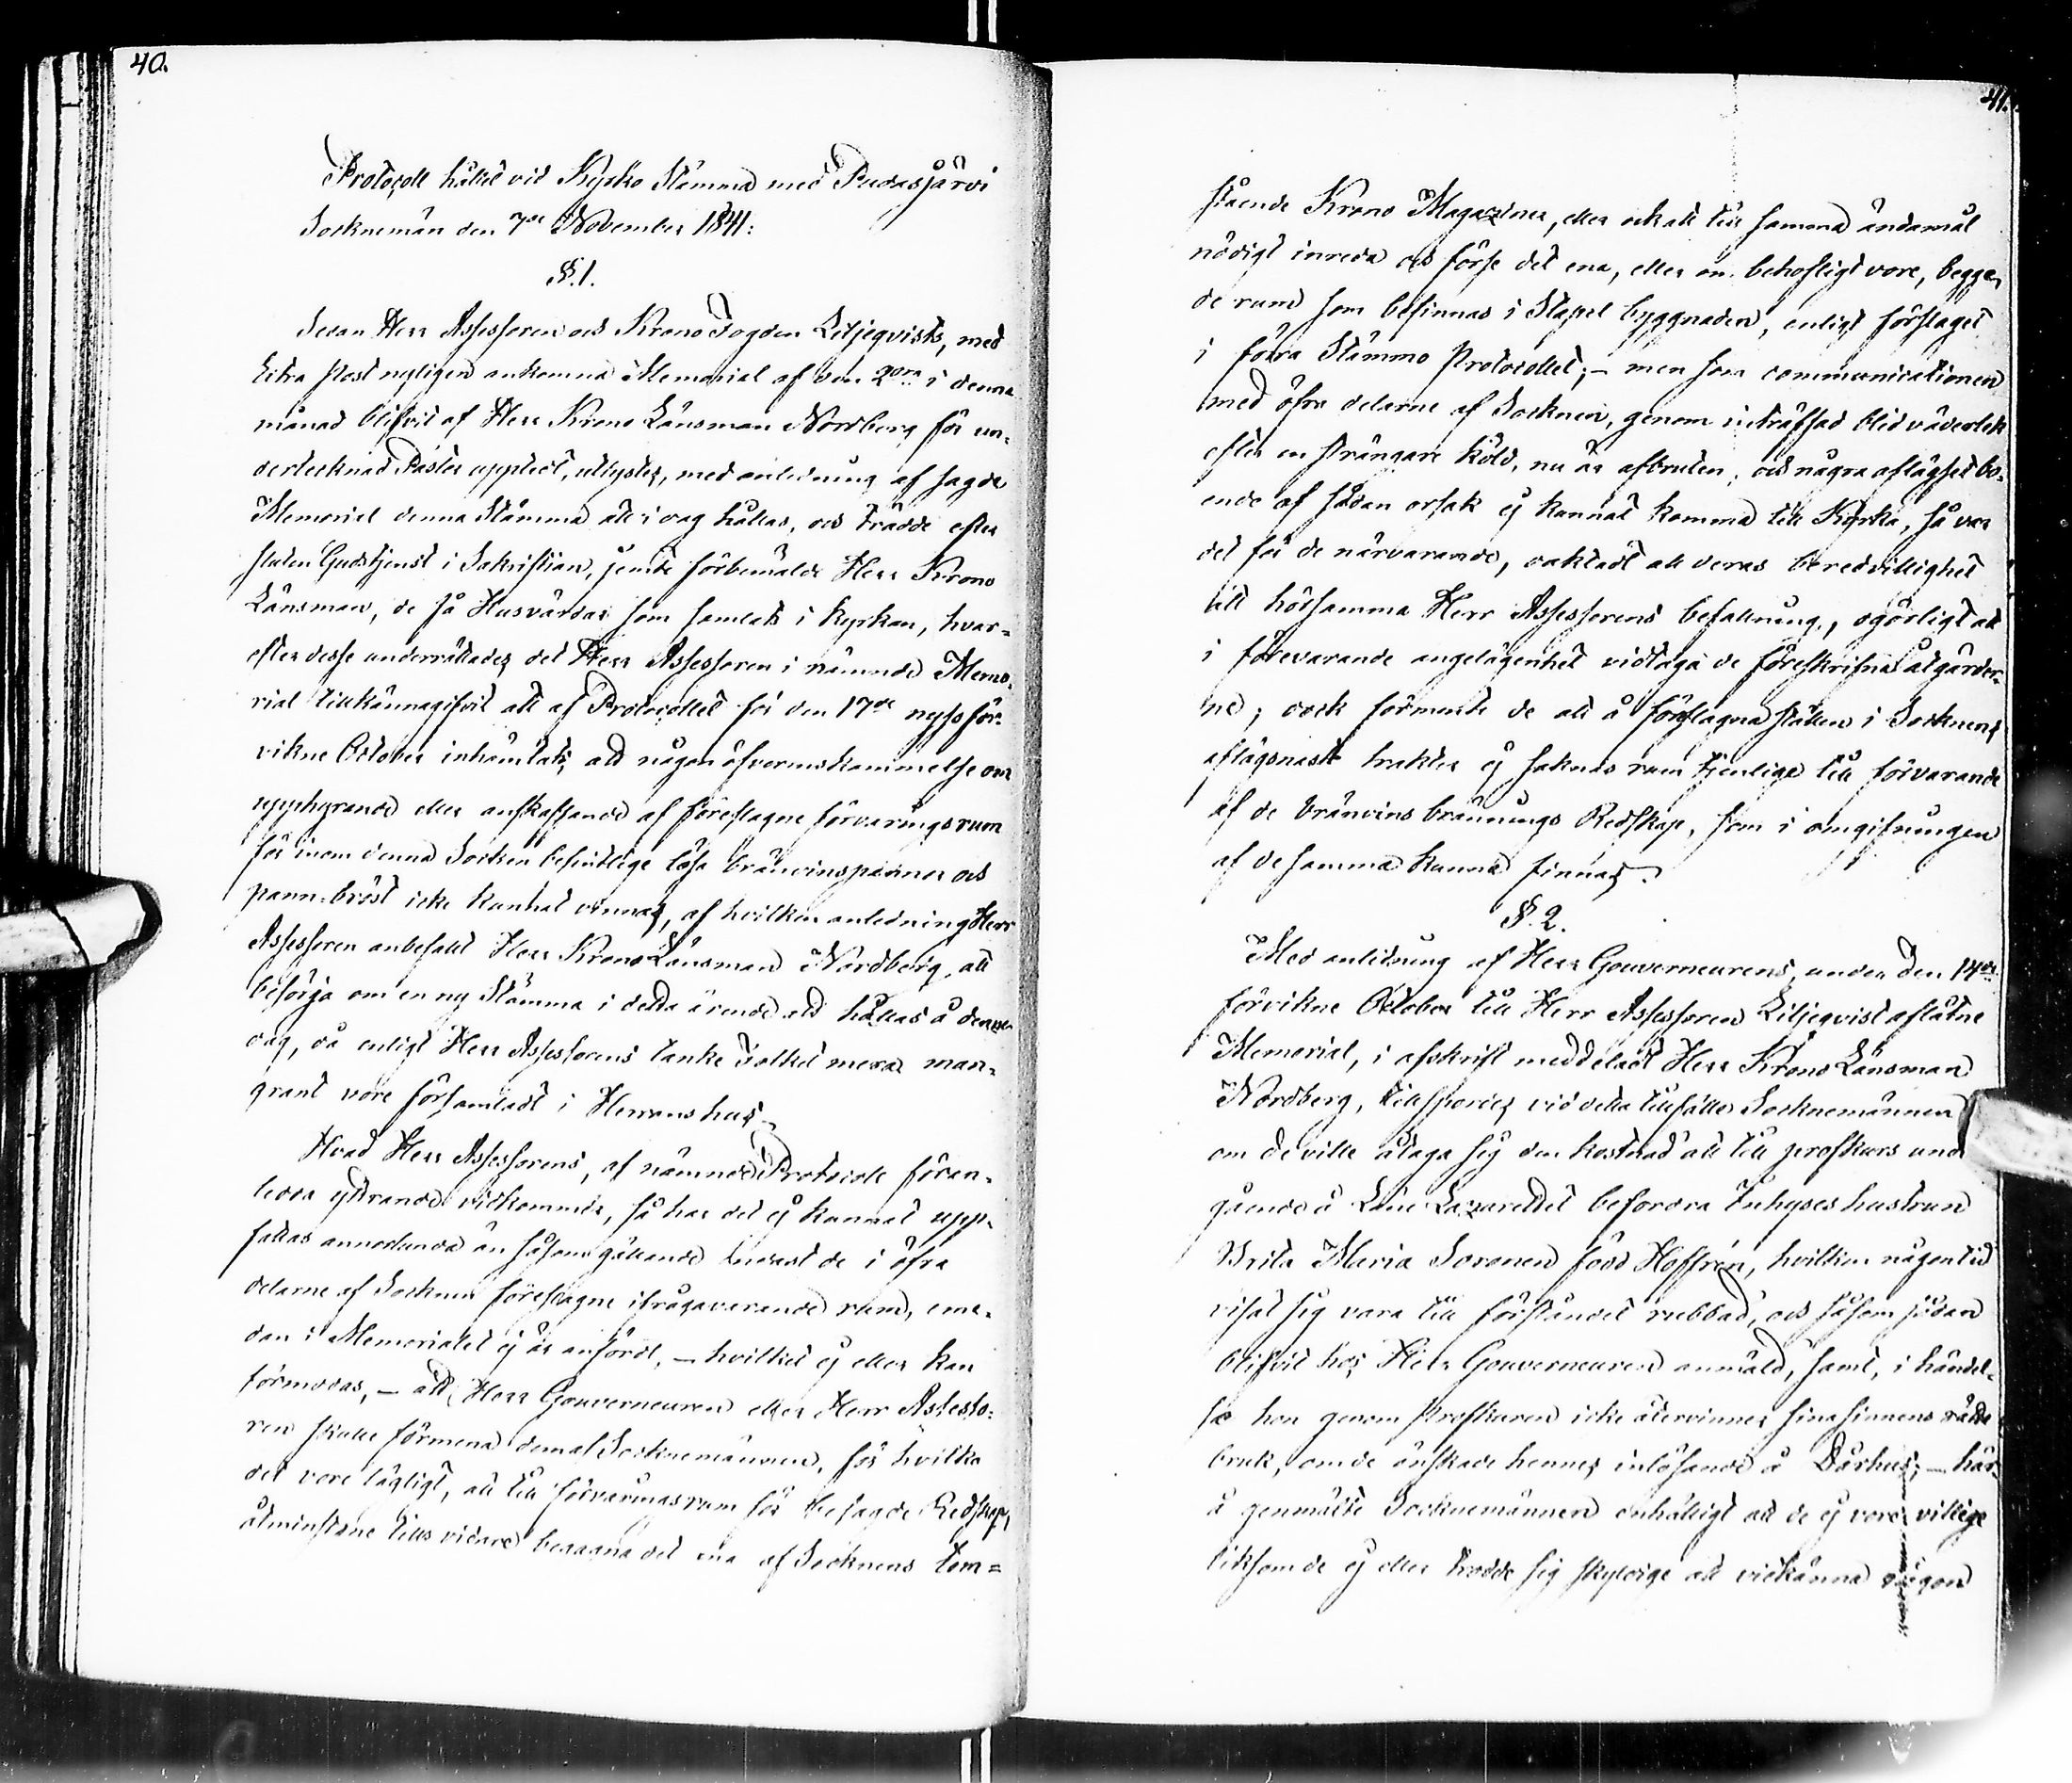 40.
Protocoll hållit vid Kyrko Stämma med Pudasjärvi
Sockenmän den 7de November 1841:
§.1.
Sedan Herr Assessoren och Krono Fogden Liljeqvists, med
Extra post nyligen ankomna Memorial af den 2dra i denna
månad blifvit af Herr Krono Länsman Nordberg för un-
dertecknad Pastor uppteet, utlystes, med anledning af sagde
Memorial denna Stämma att i dag hållas, och trädde efter
sluten Gudstjenst i Sakristian, jemte förbemälde Herr Krono
Länsman, de få Husvärdar som samlats i kyrkan, hvar-
efter desse underrättades, det Herr Assessoren i nämnde Memo-
rial tillkännagifvit att af Protocollet för den 17de nyssför-
vikne October inhämtats, att någon öfverenskommelse om
upphyrande eller anskaffande af föreslagne förvaringsrum
för inom denna Socken befintlige lösa bränvinspannor och
pann-bröst icke kunnat vinnas, af hvilken anledning Herr
Assessoren anbefalt Herr Krono Länsman Nordberg, att
besörja om en ny Stämma i detta ärende att hållas å denne
dag, då enligt Herr Assessorens tanke Folket mera man-
grant vore församladt i Herrans hus.
Hvad Herr Assessorens, af nämnde Protocoll föran-
ledda yttrande vidkommer, så har det ej kunnat upp-
fattas annorlunda än såsom gällande endast de i öfra
delarne af Socknen föreslagne ifrågavarande rum, eme-
dan i Memorialet ej är anfördt, – hvilket ej eller kan
förmodas, – att Herr Gouverneuren eller Herr Assesso-
ren skulle förmena dem af Sockenmännen, för hvilka
det vore lägligt, att till förvaringsrum för besagde Redskap,
åtminstone tills vidare begagna det ena af Socknens tom=
41.
stående Krono Magaziner, eller ock att till samma ändamål
nödigt inreda och förse det ena, eller om behofligt vore, begge
de rum som befinnas i Stapel byggnaden, enligt förslaget
i förra Stämmo Protocollet; – men som communicationen
med öfra delarne af Socknen, genom inträffad blidväderlek
efter en strängare köld, nu är afbruten, och några aflägset bo-
ende af sådan orsak ej kunnat komma till Kyrka, så var
det för de närvarande, oaktadt all deras beredvillighet
att hörsamma Herr Assessorens befallning, ogörligt att
i förevarande angelägenhet vidtaga de föreskrifna åtgärder-
ne; dock förmente de att å föreslagna ställen i Socknens
aflägsnaste trakter ej saknas rum tjenlige till förvarande
af de bränvins bränings Redskap, som i omgifningen
af desamma kunna finnas.
§.2.
Med anledning af Herr Gouverneurens, under den 14de
förvikne October till Herr Assessoren Liljeqvist aflåtne
Memorial, i afskrift meddeladt Herr Krono Länsman
Nordberg, tillsporde vid detta tillfälle Sockenmännen
om de ville åtaga sig den kostnad att till profkurs und
gående å Läne Lazarettet befordra Inhyses hustrun
Brita Maria Soronen född Hoffrén, hvilken någon tid
visat sig vara till förståndet rubbad, och såsom sådan
blifvit hos Herr Gouverneuren anmäld, samt, i händel-
se hon genom profkuren icke återvinner sina sinnens rätta
bruk, om de önskade hennes inlösande å Dårhus; – här-
å genmälte Sockenmännen enhälligt att de ej vore villige
liksom de ej eller trodde sig skyldige att vidkänna någon